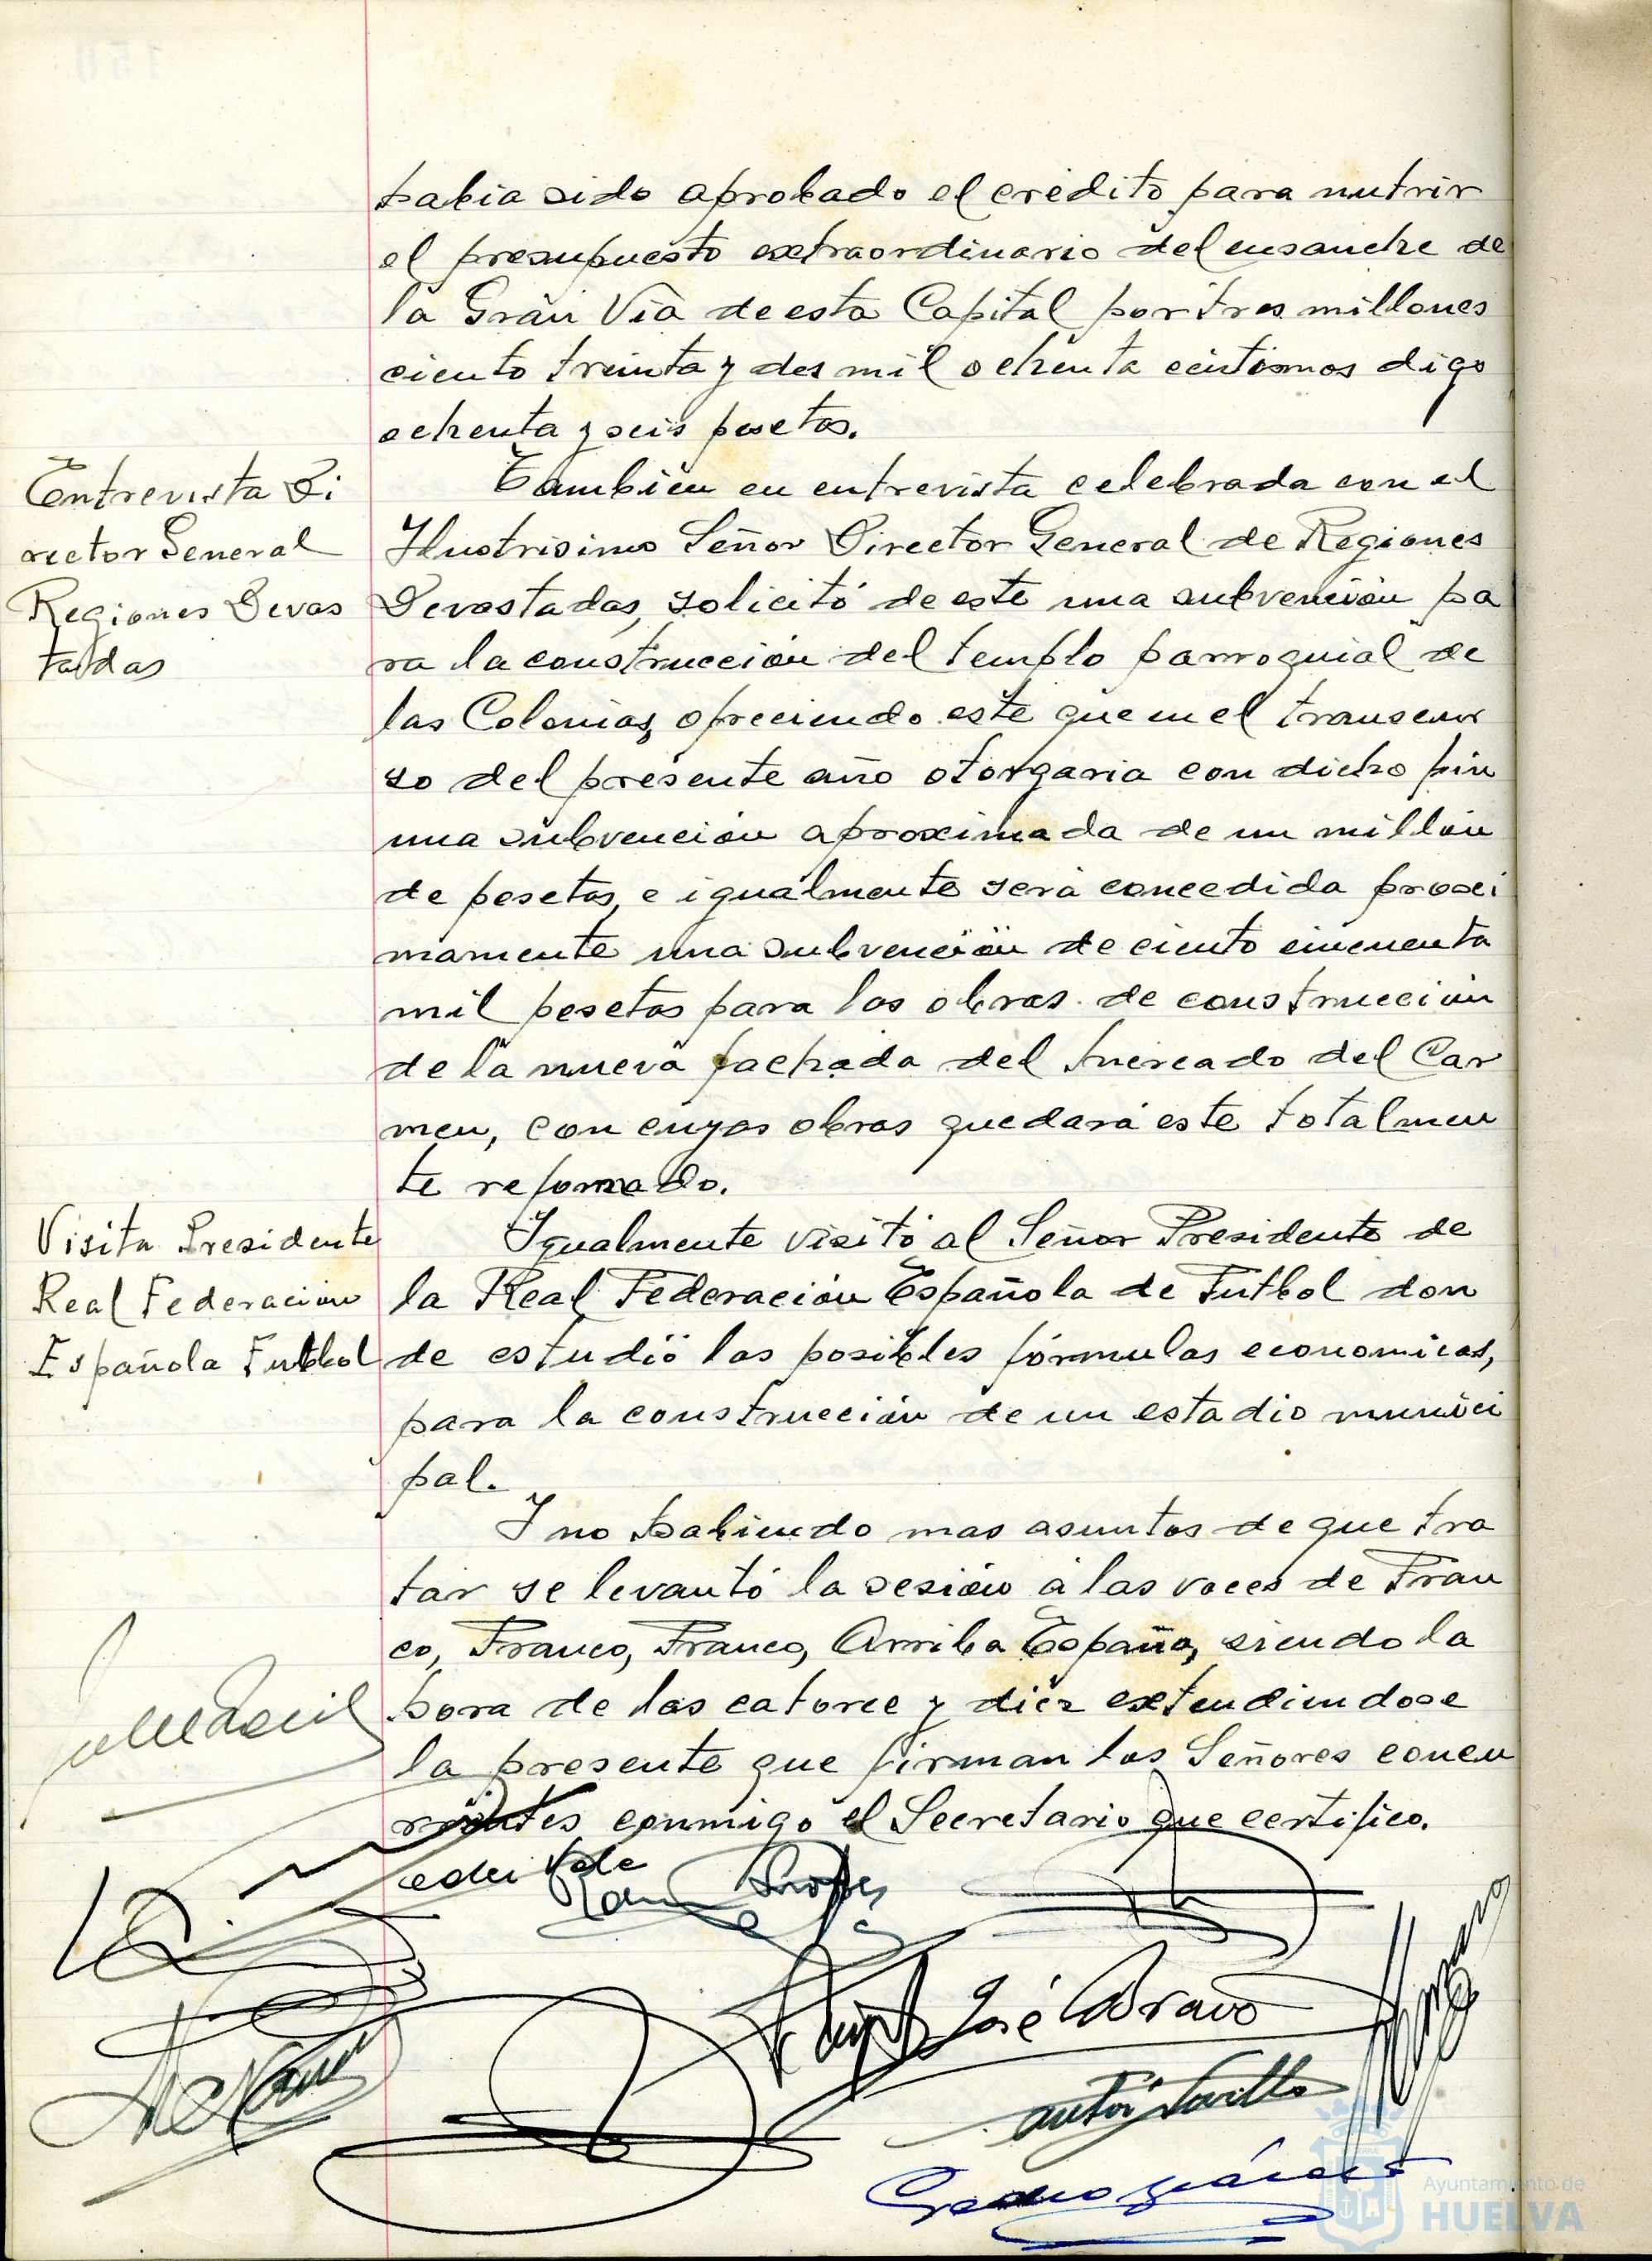 habia sido aprobado el crédito para nutrir
el presupuesto extraordinario del ensanche de
la Gran Via de esta Capital por tres millones
ciento treinta y dos mil ochenta centimos digo
ochenta y seis pesetas.
Entrevista Di
rector General
Regiones Devas
tadas
Tambien en entrevista celebrada con el
Ilustrisimo Señor Director General de Regiones
Devastadas, solicitó de este una subvención pa
ra la construccion del templo parroquial de
las Colonias, ofreciendo este que en el transcur
so del presente año otorgaria con dicho fin
una subvencion aproximada de un millon
de pesetas, e igualmente será concedida proxi
mamente una subvención de ciento cincuenta
mil pesetas para las obras de construccion
de la nueva fachada del Mercado del Car
men, con cuyas obras quedará este totalmen
te reformado.
Visita Presidente
Real Federacion
Española Futbol
Igualmente visitó al Señor Presidente de
la Real Federación Española de Futbol don
de estudió las posibles fórmulas economicas,
para la construcción de un estadio munici
pal.
I no habiendo mas asuntos de que tra
tar se levantó la sesión a las voces de Fran
co, Franco, Franco, Arriba España, siendo la
hora de las catorce y diez extendiendose
la presente que firman los Señores concu
rrentes conmigo el Secretario que certifico.
José Bravo
Ayuntamiento de
HUELVA